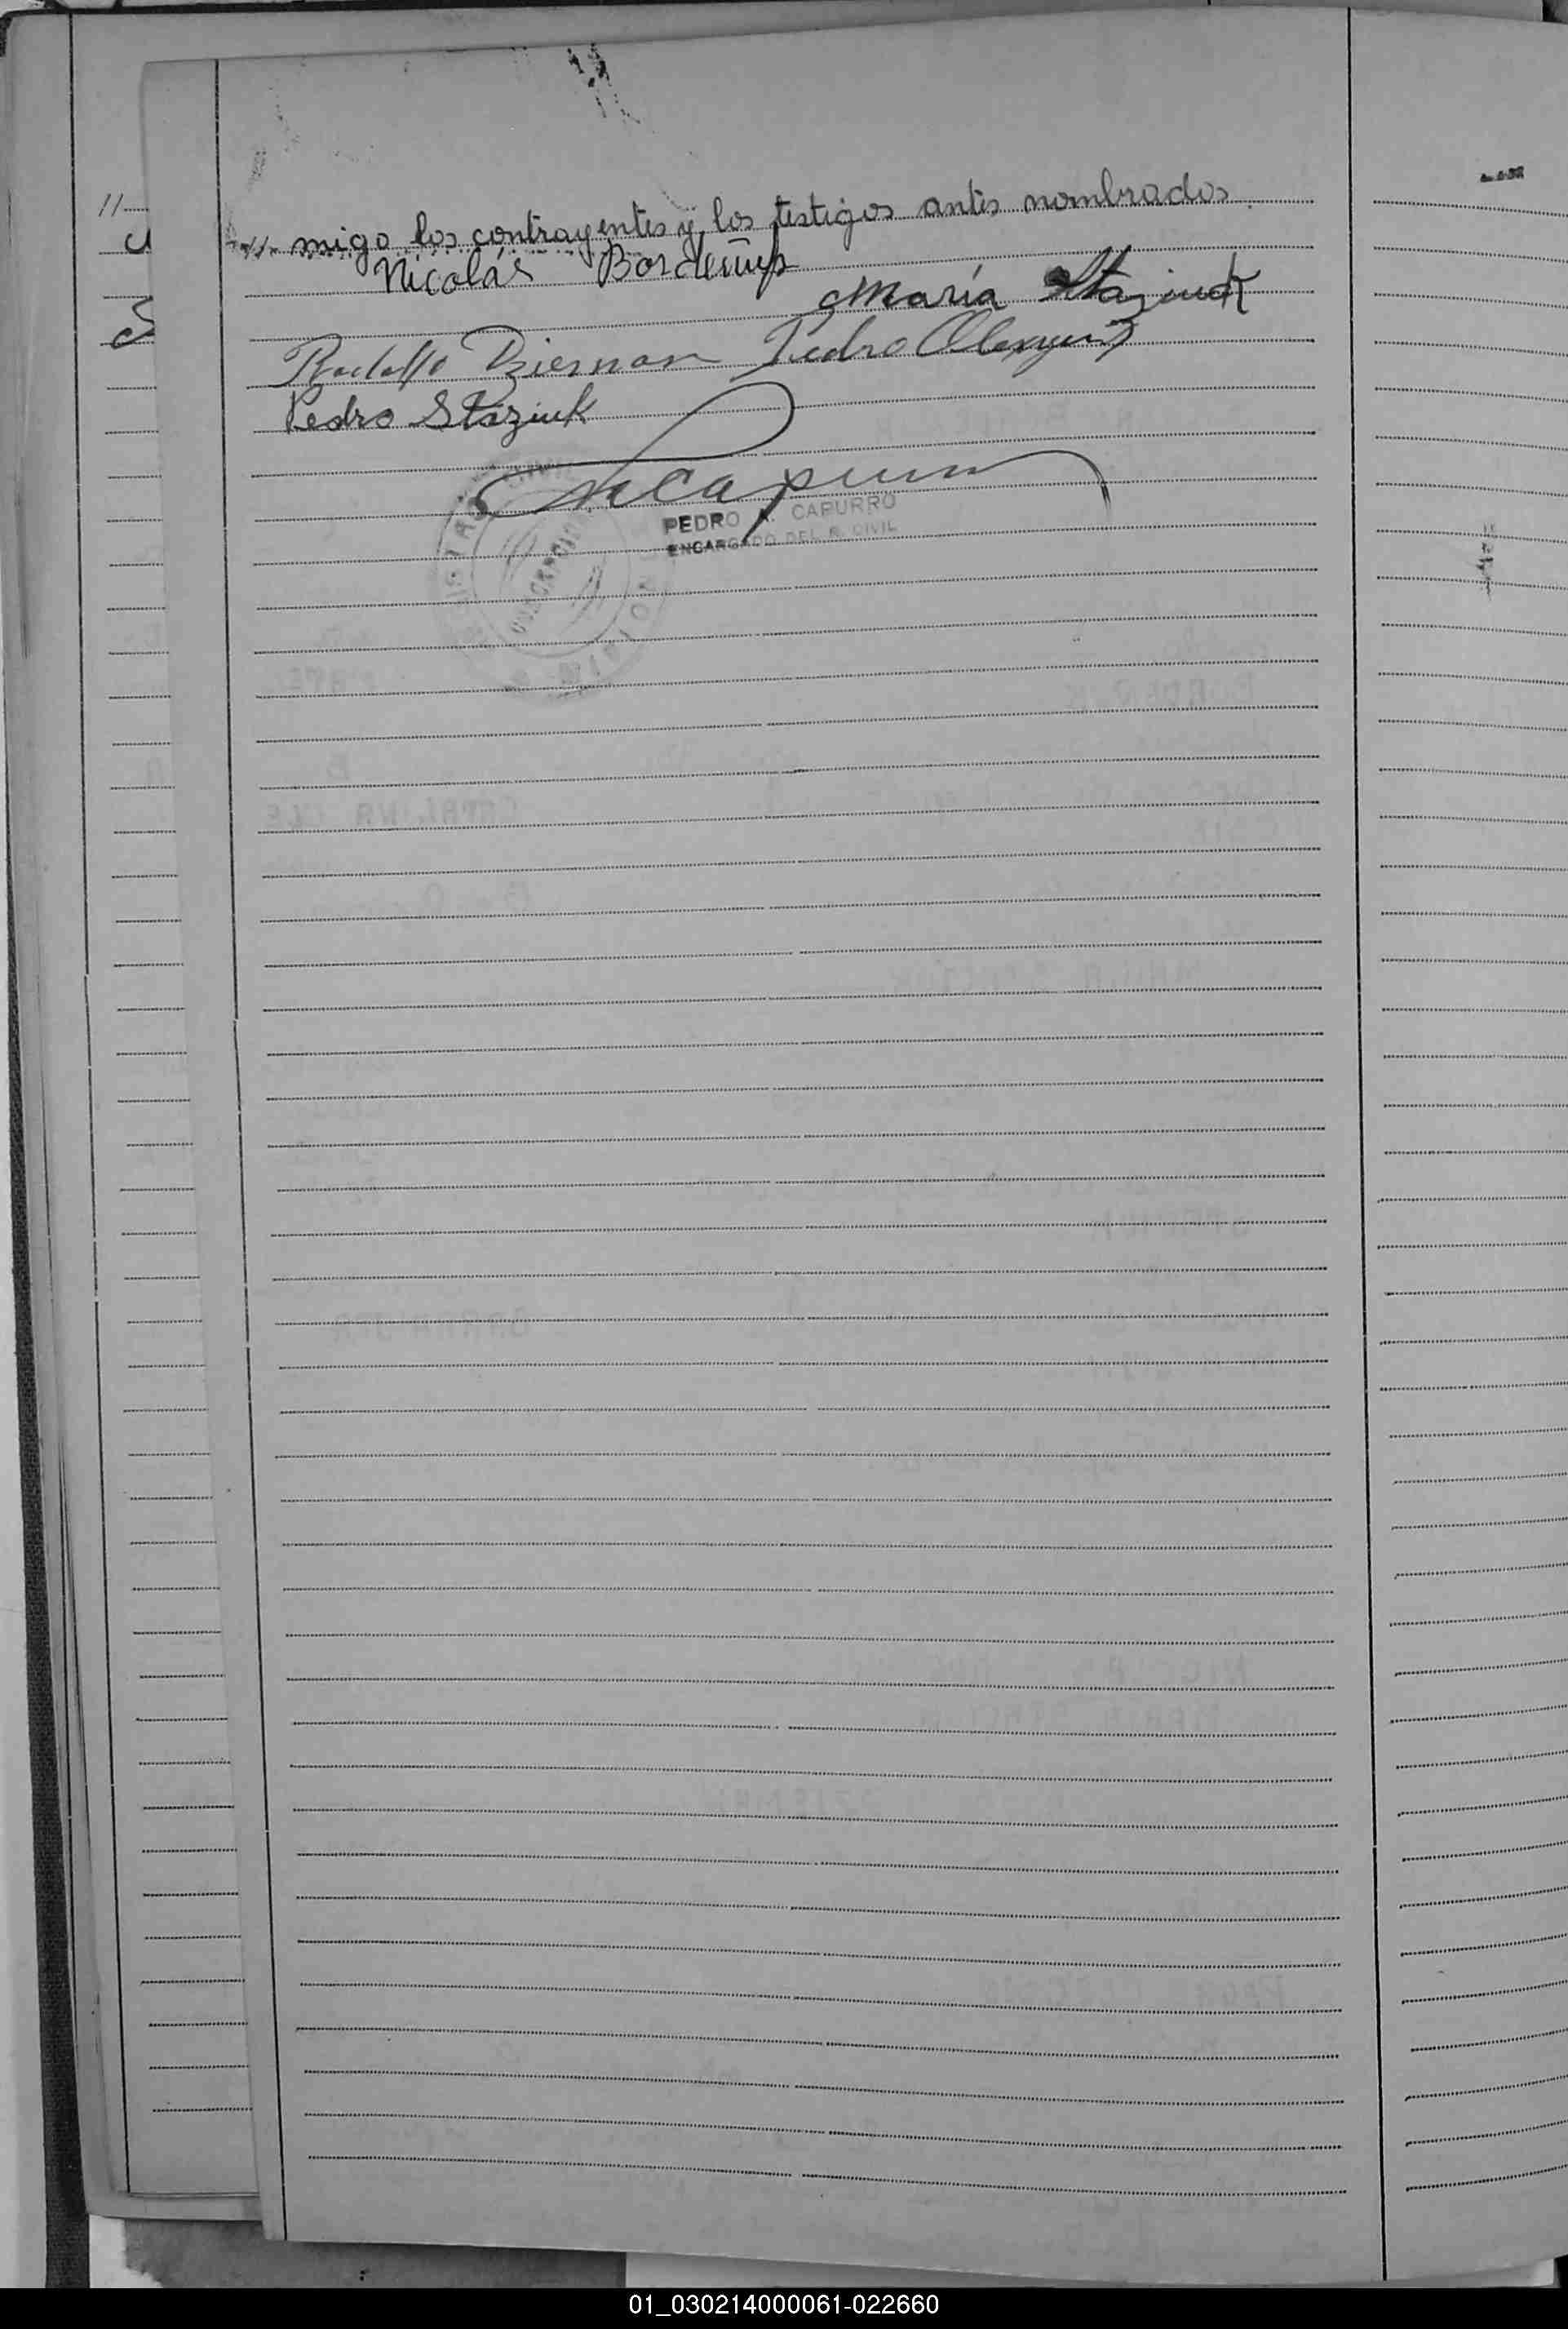 -//- migo los contrayentes y los testigos antes nombrados.
Nicolás
María Staziuk
Rodolfo Dzieman Pedro
Pedro Staziuk
PEDRO A. CAPURRO
ENCARGADO DEL R. CIVIL
01_030214000061-022660